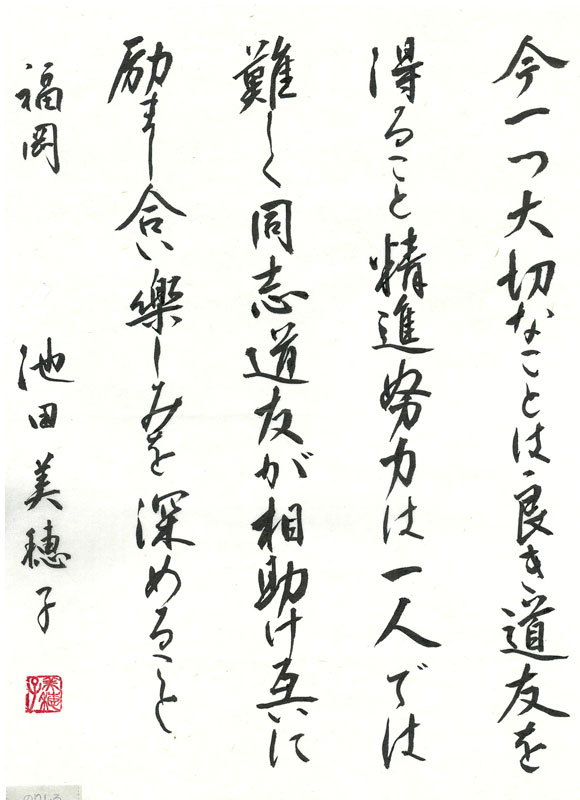 今一つ大切なことは良き道友を
得ること精進努力は一人では
難しく同志道友が相助け互いに
励まし合い樂しみを深めること
福岡 池田美穂子
美穂子